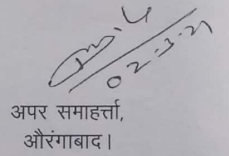 02-3-21
अपर समाहर्त्ता,
औरंगाबाद।